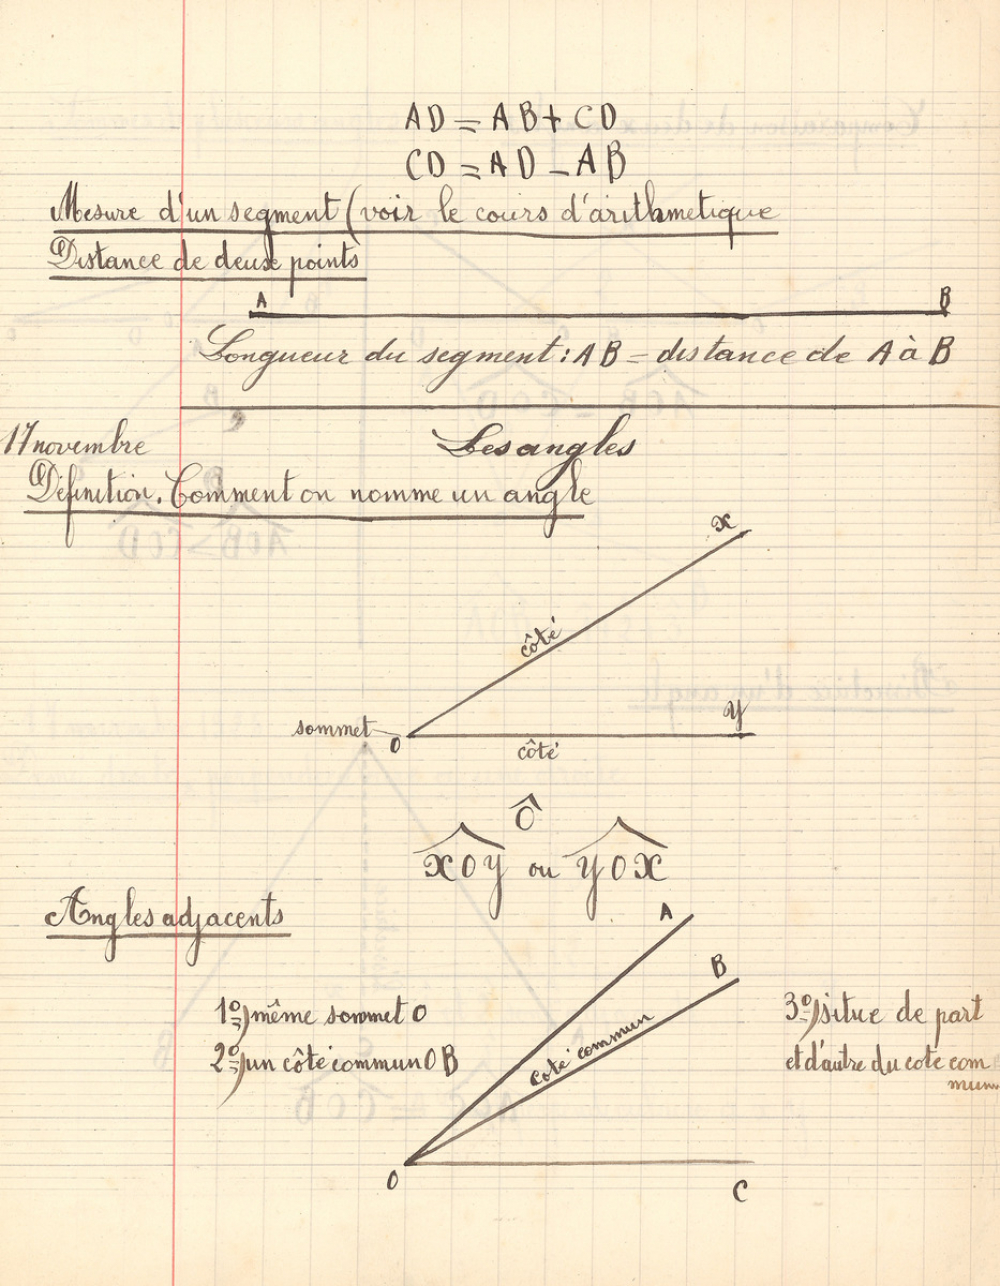 AD = AB + CD
CD = AD - AB
Mesure d'un segment (voir le cours d'arithmetique
Distance de deux points
A B
Longueur du segment : AB = distance de A à B
17 novembre Les angles
Définition. Comment on nomme un angle
x
côté
sommet O y
côté
Ô
xOy ou yOx
Angles adjacents
A
B
1º) même sommet O
2º) un côté commun OB
coté commun
3º) situe de part
et d'autre du cote com
mun
O C